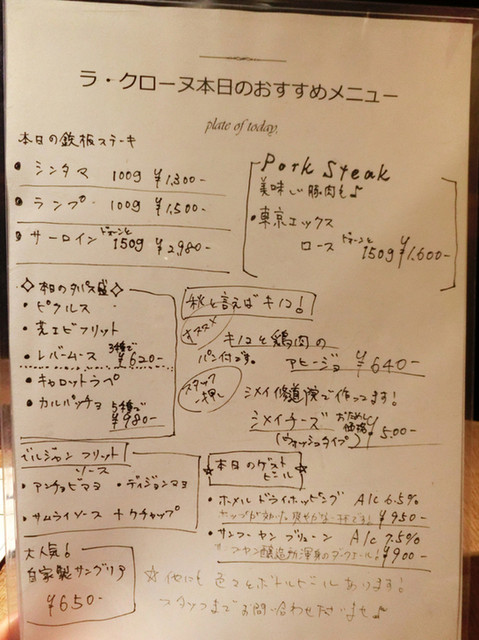 ラ・クローヌ本日のおすすめメニュー
plate of today.
本日の鉄板ステーキ
• シンタマ 100g ¥1,300-
• ランプ 100g ¥1,500-
• サーロイン ドドーンと 150g ¥2,980-
Pork Steak
美味しい豚肉も♪
• 東京エックス
ロース ドドーンと 150g ¥1,600-
◇本日のタパス盛◇
• ピクルス
• 芝エビフリット
• レバームース 3種で ¥620-
• キャロットラペ
• カルパッチョ 5種で ¥980-
秋と言えばキノコ!
オススメ
キノコと鶏肉の
パン付です。 アヒージョ ¥640-
スタッフ一押し
シメイ修道院で作ってます!
シメイチーズ おためし価格 ¥500-
(ウォッシュタイプ)
ベルジャンフリット
ソース
• アンチョビマヨ • ディジョンマヨ
• サムライソース ケチャップ
大人気!
自家製サングリア
¥650-
☆本日のゲストビール☆
• ホメルドライホッピング Alc 6.5%
ホップが効いた爽やかな一杯です! ¥950-
• サンフーヤンブリューン Alc 7.5%
¥900-
☆他にも色々とボトルビールあります!
スタッフまでお問い合わせ下さいませ♪